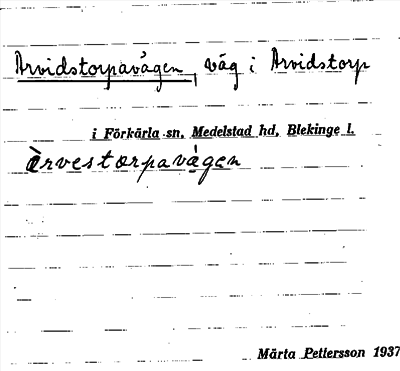 Arvidstorpavägen, väg i Arvidstorp
i Förkärla sn, Medelstad hd, Blekinge l.
àrvestorpavä̀gen
Märta Pettersson 1937